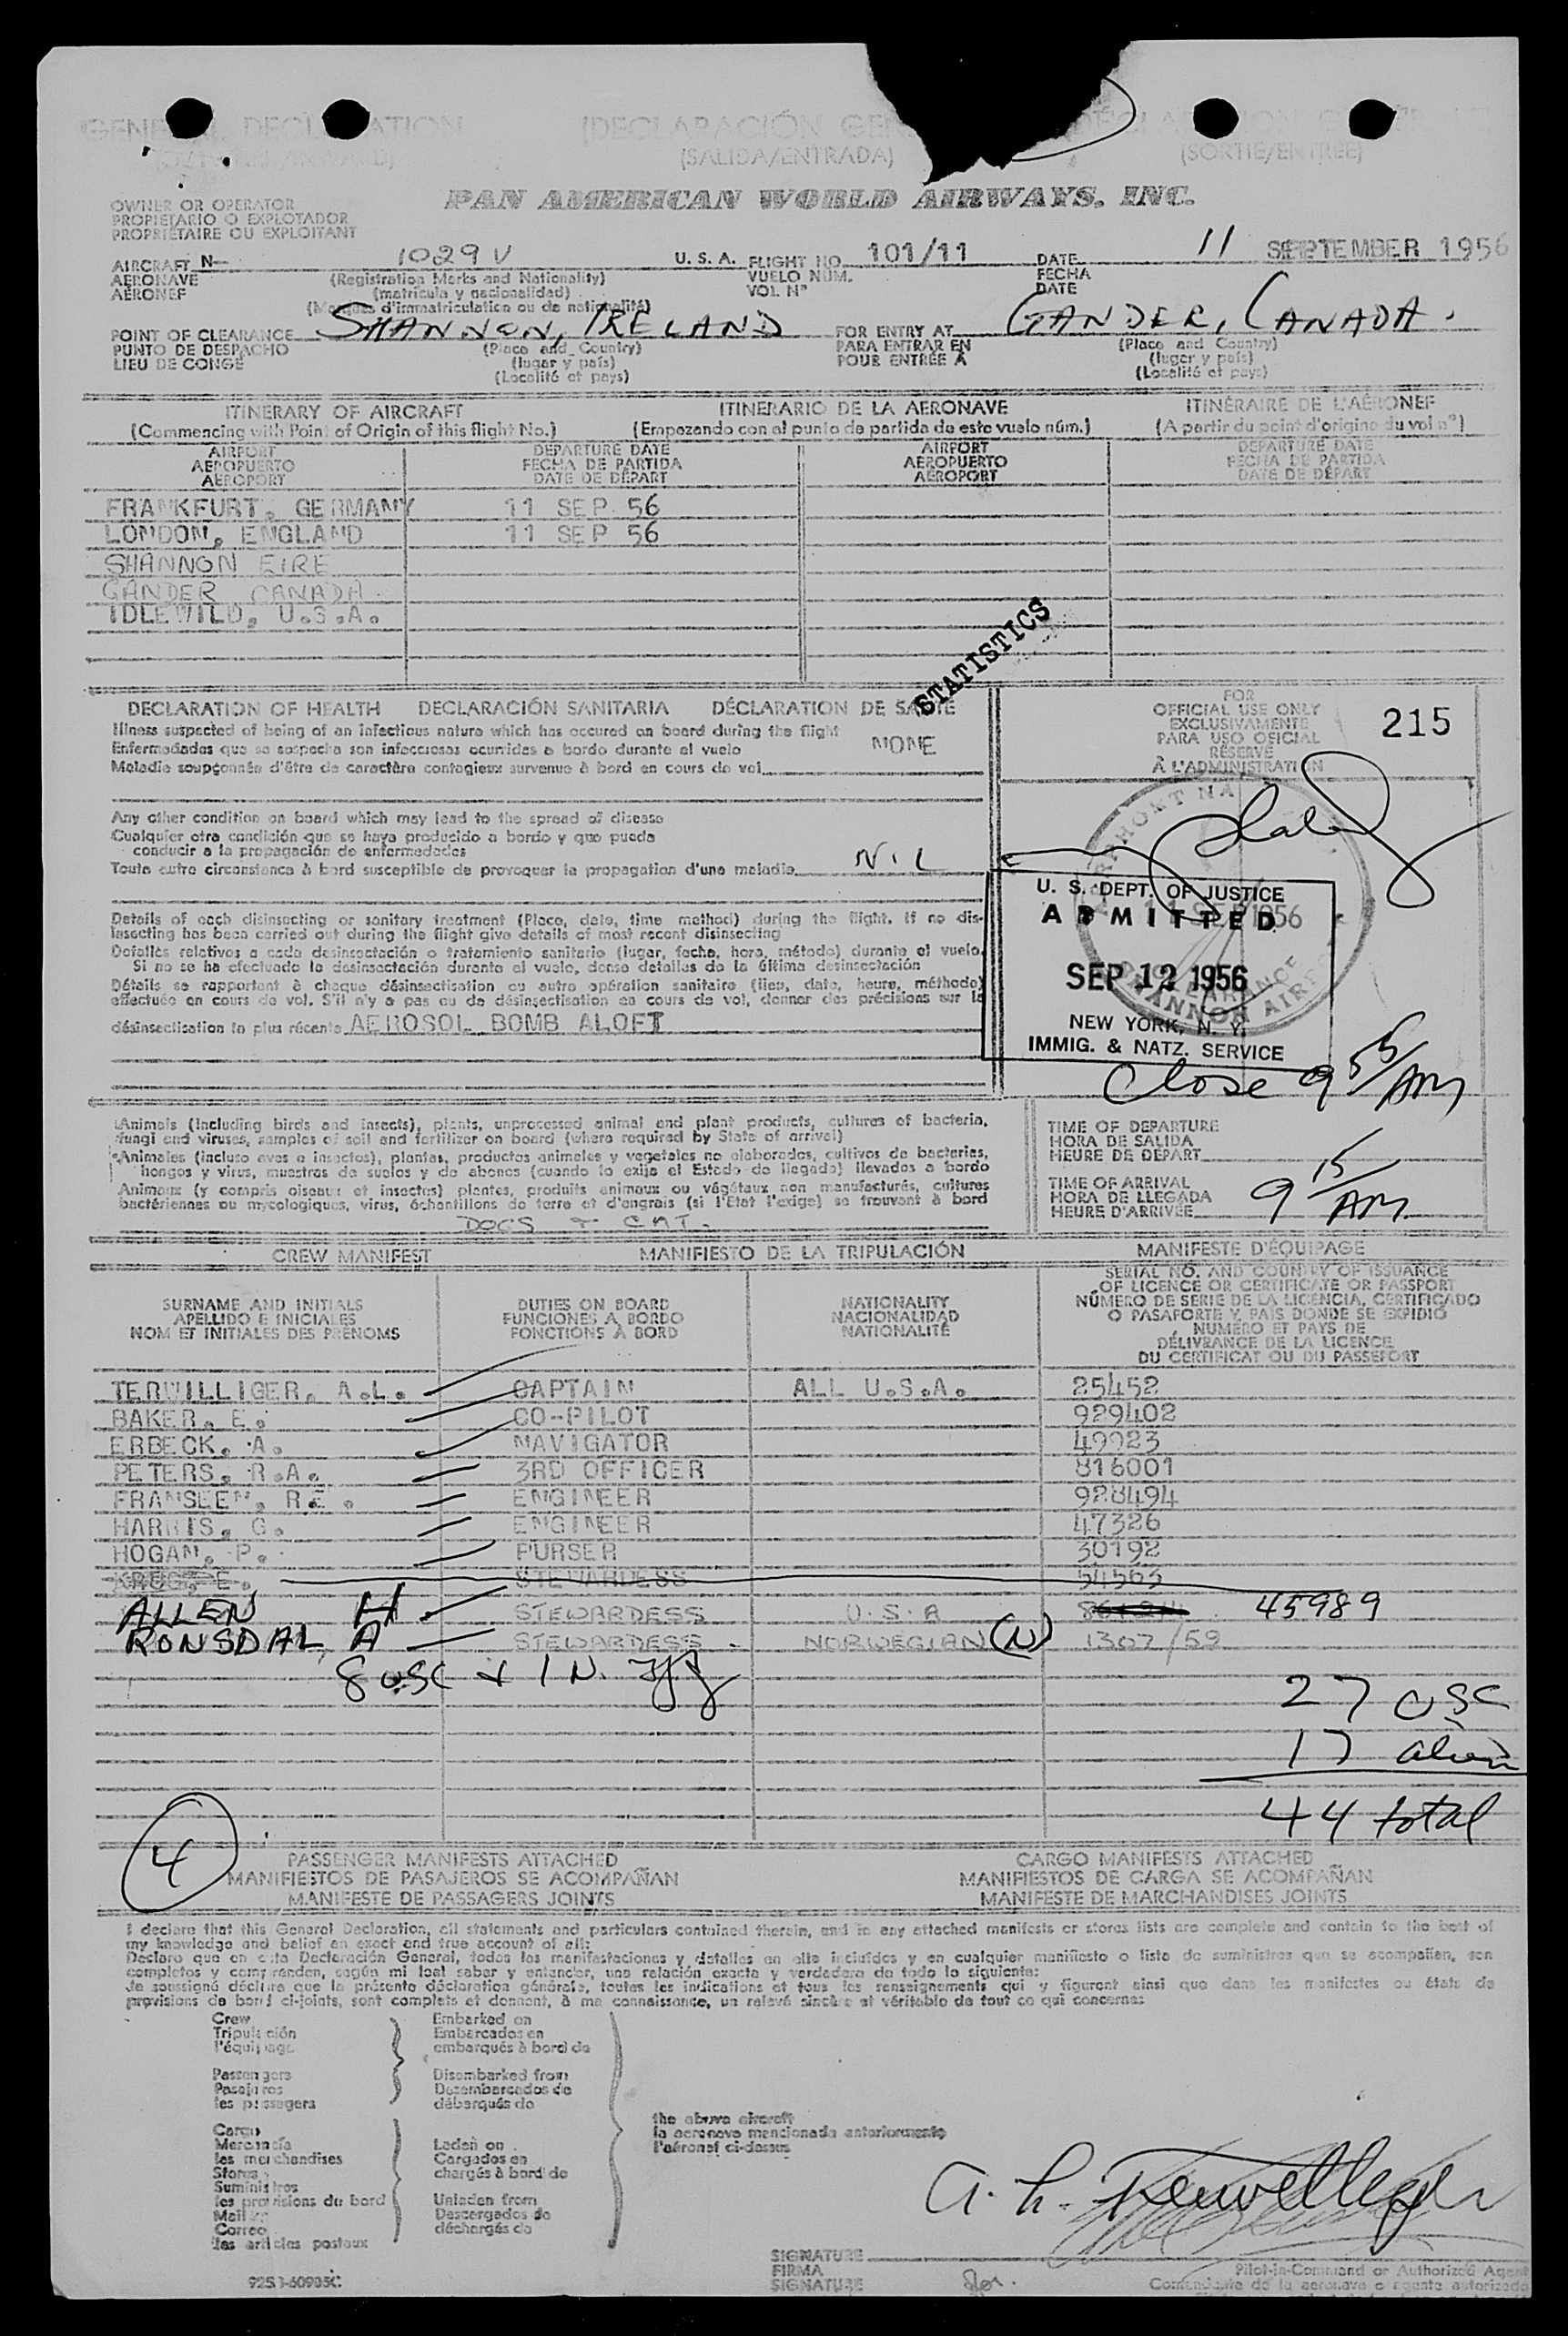 GENERAL DECLARATION (DECLARACIÓN GE
(SALIDA/ENTRADA) (SORTIE/ENTRÉE)
OWNER OR OPERATOR
PROPIETARIO O EXPLOTADOR
PROPRIÉTAIRE OU EXPLOITANT
PAN AMERICAN WORLD AIRWAYS, INC.
AIRCRAFT N- 1029V U. S. A. FLIGHT NO. 101/11 DATE 11 SEPTEMBER 1956
AERONAVE (Registration Marks and Nationality) VUELO NÚM. FECHA
AÉRONEF (matrícula y nacionalidad) VOL Nº DATE
(Marques d'immatriculation ou de nationalité)
POINT OF CLEARANCE SHANNON, IRELAND FOR ENTRY AT GANDER, CANADA.
PUNTO DE DESPACHO (Place and Country) PARA ENTRAR EN (Place and Country)
LIEU DE CONGÉ (lugar y país) POUR ENTRÉE A (lugar y país)
(Localité et pays) (Localité et pays)
ITINERARY OF AIRCRAFT ITINERARIO DE LA AERONAVE ITINÉRAIRE DE L'AÉRONEF
(Commencing with Point of Origin of this flight No.) (Empezando con el punto de partida de este vuelo núm.) (A partir du point d'origine du vol nº)
AIRPORT DEPARTURE DATE AIRPORT DEPARTURE DATE
AEROPUERTO FECHA DE PARTIDA AEROPUERTO FECHA DE PARTIDA
AÉROPORT DATE DE DÉPART AÉROPORT DATE DE DÉPART
FRANKFURT, GERMANY 11 SEP 56
LONDON, ENGLAND 11 SEP 56
SHANNON EIRE
GANDER CANADA.
IDLEWILD, U.S.A.
STATISTICS
DECLARATION OF HEALTH DECLARACIÓN SANITARIA DÉCLARATION DE SANTÉ
Illness suspected of being of an infectious nature which has occured on board during the flight
Enfermedades que se sospecha son infecciosas ocurridas a bordo durante el vuelo NONE
Maladie soupçonnée d'être de caractère contagieux survenue à bord en cours de vol
FOR
OFFICIAL USE ONLY
EXCLUSIVAMENTE
PARA USO OFICIAL
RÉSERVÉ
À L'ADMINISTRATION
215
Any other condition on board which may lead to the spread of disease
Cualquier otra condición que se haya producido a bordo y que pueda
conducir a la propagación de enfermedades
Toute autre circonstance à bord susceptible de provoquer la propagation d'une maladie NIL
Details of each disinsecting or sanitary treatment (Place, date, time method) during the flight. If no dis-
insecting has been carried out during the flight give details of most recent disinsecting
Detalles relativos a cada desinsectación o tratamiento sanitario (lugar, fecha, hora, método) durante el vuelo.
Si no se ha efectuado la desinsectación durante el vuelo, dense detalles de la última desinsectación
Détails se rapportant à chaque désinsectisation ou autre opération sanitaire (lieu, date, heure, méthode)
effectuée en cours de vol. S'il n'y a pas eu de désinsectisation en cours de vol, donner des précisions sur la
désinsectisation la plus récente AEROSOL BOMB ALOFT
U. S. DEPT. OF JUSTICE
ADMITTED
SEP 12 1956
NEW YORK, N. Y.
IMMIG. & NATZ. SERVICE
11 SEP 1956
CLEARANCE
SHANNON AIRPORT
Close 9 55/AM
Animals (Including birds and insects), plants, unprocessed animal and plant products, cultures of bacteria,
fungi and viruses, samples of soil and fertilizer on board (where required by State of arrival)
Animales (incluso aves e insectos), plantas, productos animales y vegetales no elaborados, cultivos de bacterias,
hongos y virus, muestras de suelos y de abonos (cuando lo exija el Estado de llegada) llevados a bordo
Animaux (y compris oiseaux et insectes) plantes, produits animaux ou végétaux non manufacturés, cultures
bactériennes ou mycologiques, virus, échantillons de terre et d'engrais (si l'Etat l'exige) se trouvant à bord
DOGS & CAT.
TIME OF DEPARTURE
HORA DE SALIDA
HEURE DE DÉPART
TIME OF ARRIVAL
HORA DE LLEGADA
HEURE D'ARRIVÉE 9 15/AM
CREW MANIFEST MANIFIESTO DE LA TRIPULACIÓN MANIFESTE D'ÉQUIPAGE
SURNAME AND INITIALS DUTIES ON BOARD NATIONALITY
APELLIDO E INICIALES FUNCIONES A BORDO NACIONALIDAD
NOM ET INITIALES DES PRÉNOMS FONCTIONS À BORD NATIONALITÉ
SERIAL NO. AND COUNTRY OF ISSUANCE
OF LICENCE OR CERTIFICATE OR PASSPORT
NÚMERO DE SERIE DE LA LICENCIA, CERTIFICADO
O PASAPORTE Y PAIS DONDE SE EXPIDIÓ
NUMÉRO ET PAYS DE
DÉLIVRANCE DE LA LICENCE
DU CERTIFICAT OU DU PASSEPORT
TERWILLIGER, A.L. CAPTAIN ALL U.S.A. 25452
BAKER, E. CO-PILOT 929402
ERBECK, A. NAVIGATOR 49923
PETERS, R.A. 3RD OFFICER 816001
FRANSEEN, R.E. ENGINEER 928494
HARRIS, G. ENGINEER 47326
HOGAN, P. PURSER 30192
KRUGER, E. STEWARDESS 54563
ALLEN H STEWARDESS U.S.A 45989
RONSDAL, A STEWARDESS NORWEGIAN (N) 1307/59
8 USC & 1 N.
27 USC
17 alien
44 total
4
PASSENGER MANIFESTS ATTACHED CARGO MANIFESTS ATTACHED
MANIFIESTOS DE PASAJEROS SE ACOMPAÑAN MANIFIESTOS DE CARGA SE ACOMPAÑAN
MANIFESTE DE PASSAGERS JOINTS MANIFESTE DE MARCHANDISES JOINTS
I declare that this General Declaration, all statements and particulars contained therein, and in any attached manifests or stores lists are complete and contain to the best of
my knowledge and belief an exact and true account of all:
Declaro que en esta Declaración General, todas las manifestaciones y detalles en ella incluidos y en cualquier manifiesto o lista de suministros que se acompañen, son
completos y comprenden, según mi leal saber y entender, una relación exacta y verdadera de todo lo siguiente:
Je soussigné déclare que la présente déclaration générale, toutes les indications et tous les renseignements qui y figurent ainsi que dans les manifestes ou états de
provisions de bord ci-joints, sont complets et donnent, à ma connaissance, un relevé sincère et véritable de tout ce qui concerne:
Crew Embarked on
Tripulación Embarcados en
l'équipage embarqués à bord de
Passengers Disembarked from
Pasajeros Desembarcados de
les passagers débarqués de
the above aircraft
la aeronave mencionada anteriormente
l'aéronef ci-dessus
Cargo
Mercancía Laden on
les marchandises Cargados en
Stores chargés à bord de
Suministros
les provisions du bord Unladen from
Mail Descargados de
Correo déchargés de
les articles postaux
A. L. Terwilliger
SIGNATURE
FIRMA Pilot-in-Command or Authorized Agent
SIGNATURE Comandante de la aeronave o agente autorizado